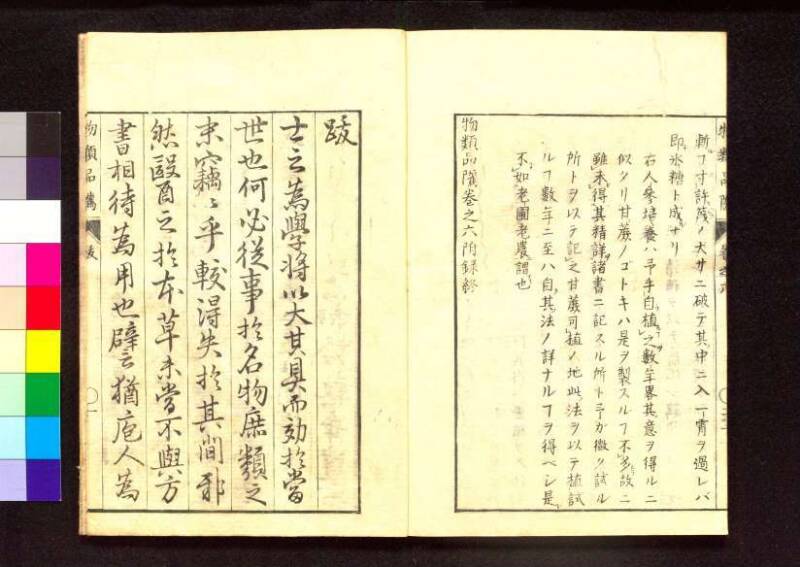 斬丁寸許茂ノ大サニ破テ其中ニ入一宵ヲ過レバ
即氷糖ト成ナリ
右人參培養ハ予手自植之數年畧其意ヲ得ルニ
似タリ甘蔗ノゴトキハ是ヲ製スルフ不多故ニ
雖未得其精詳諸書ニ記スル所ト予ガ微ク試ル
所トヲ以テ記之甘蔗可植ノ地此法ヲ以テ植試
ルフ數年ニ至ハ自其法ノ詳ナルフヲ得ベシ是
不如老圃老農謂也
物類品隲卷之六附録終
跋
士之為學將以大其具而効於當
世也何必從事於名物庶類之
末竊〻乎較得失於其間邪
然醫之於本草未嘗不與方
書相待為用也譬猶庖人為
物類品隲
跋